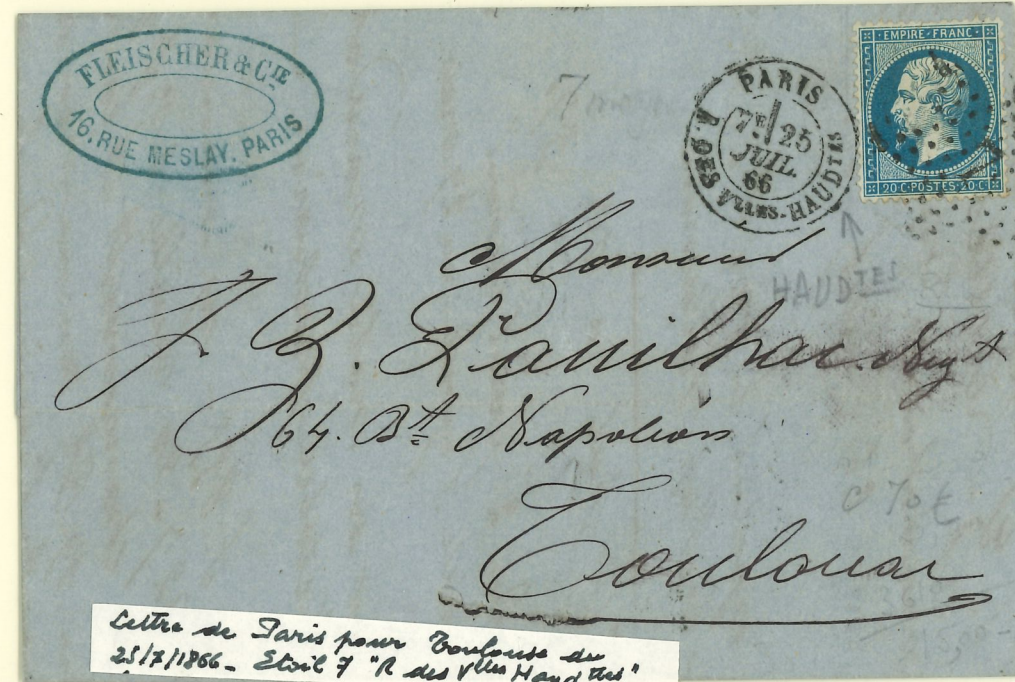 FLEISCHER & CIE
16, RUE MESLAY, PARIS
PARIS
7E 25
JUIL.
66
R. DES VLLES-HAUDTES
EMPIRE FRANC
20 C POSTES 20 C
7
Monsieur
HAUDTES
J. B. Pauilhac Negt
64. Bd Napoléon
C 70 €
Toulouse
Lettre de Paris pour Toulouse du
25/7/1866 - Etoil 7 "R des Vlles Haudtes"